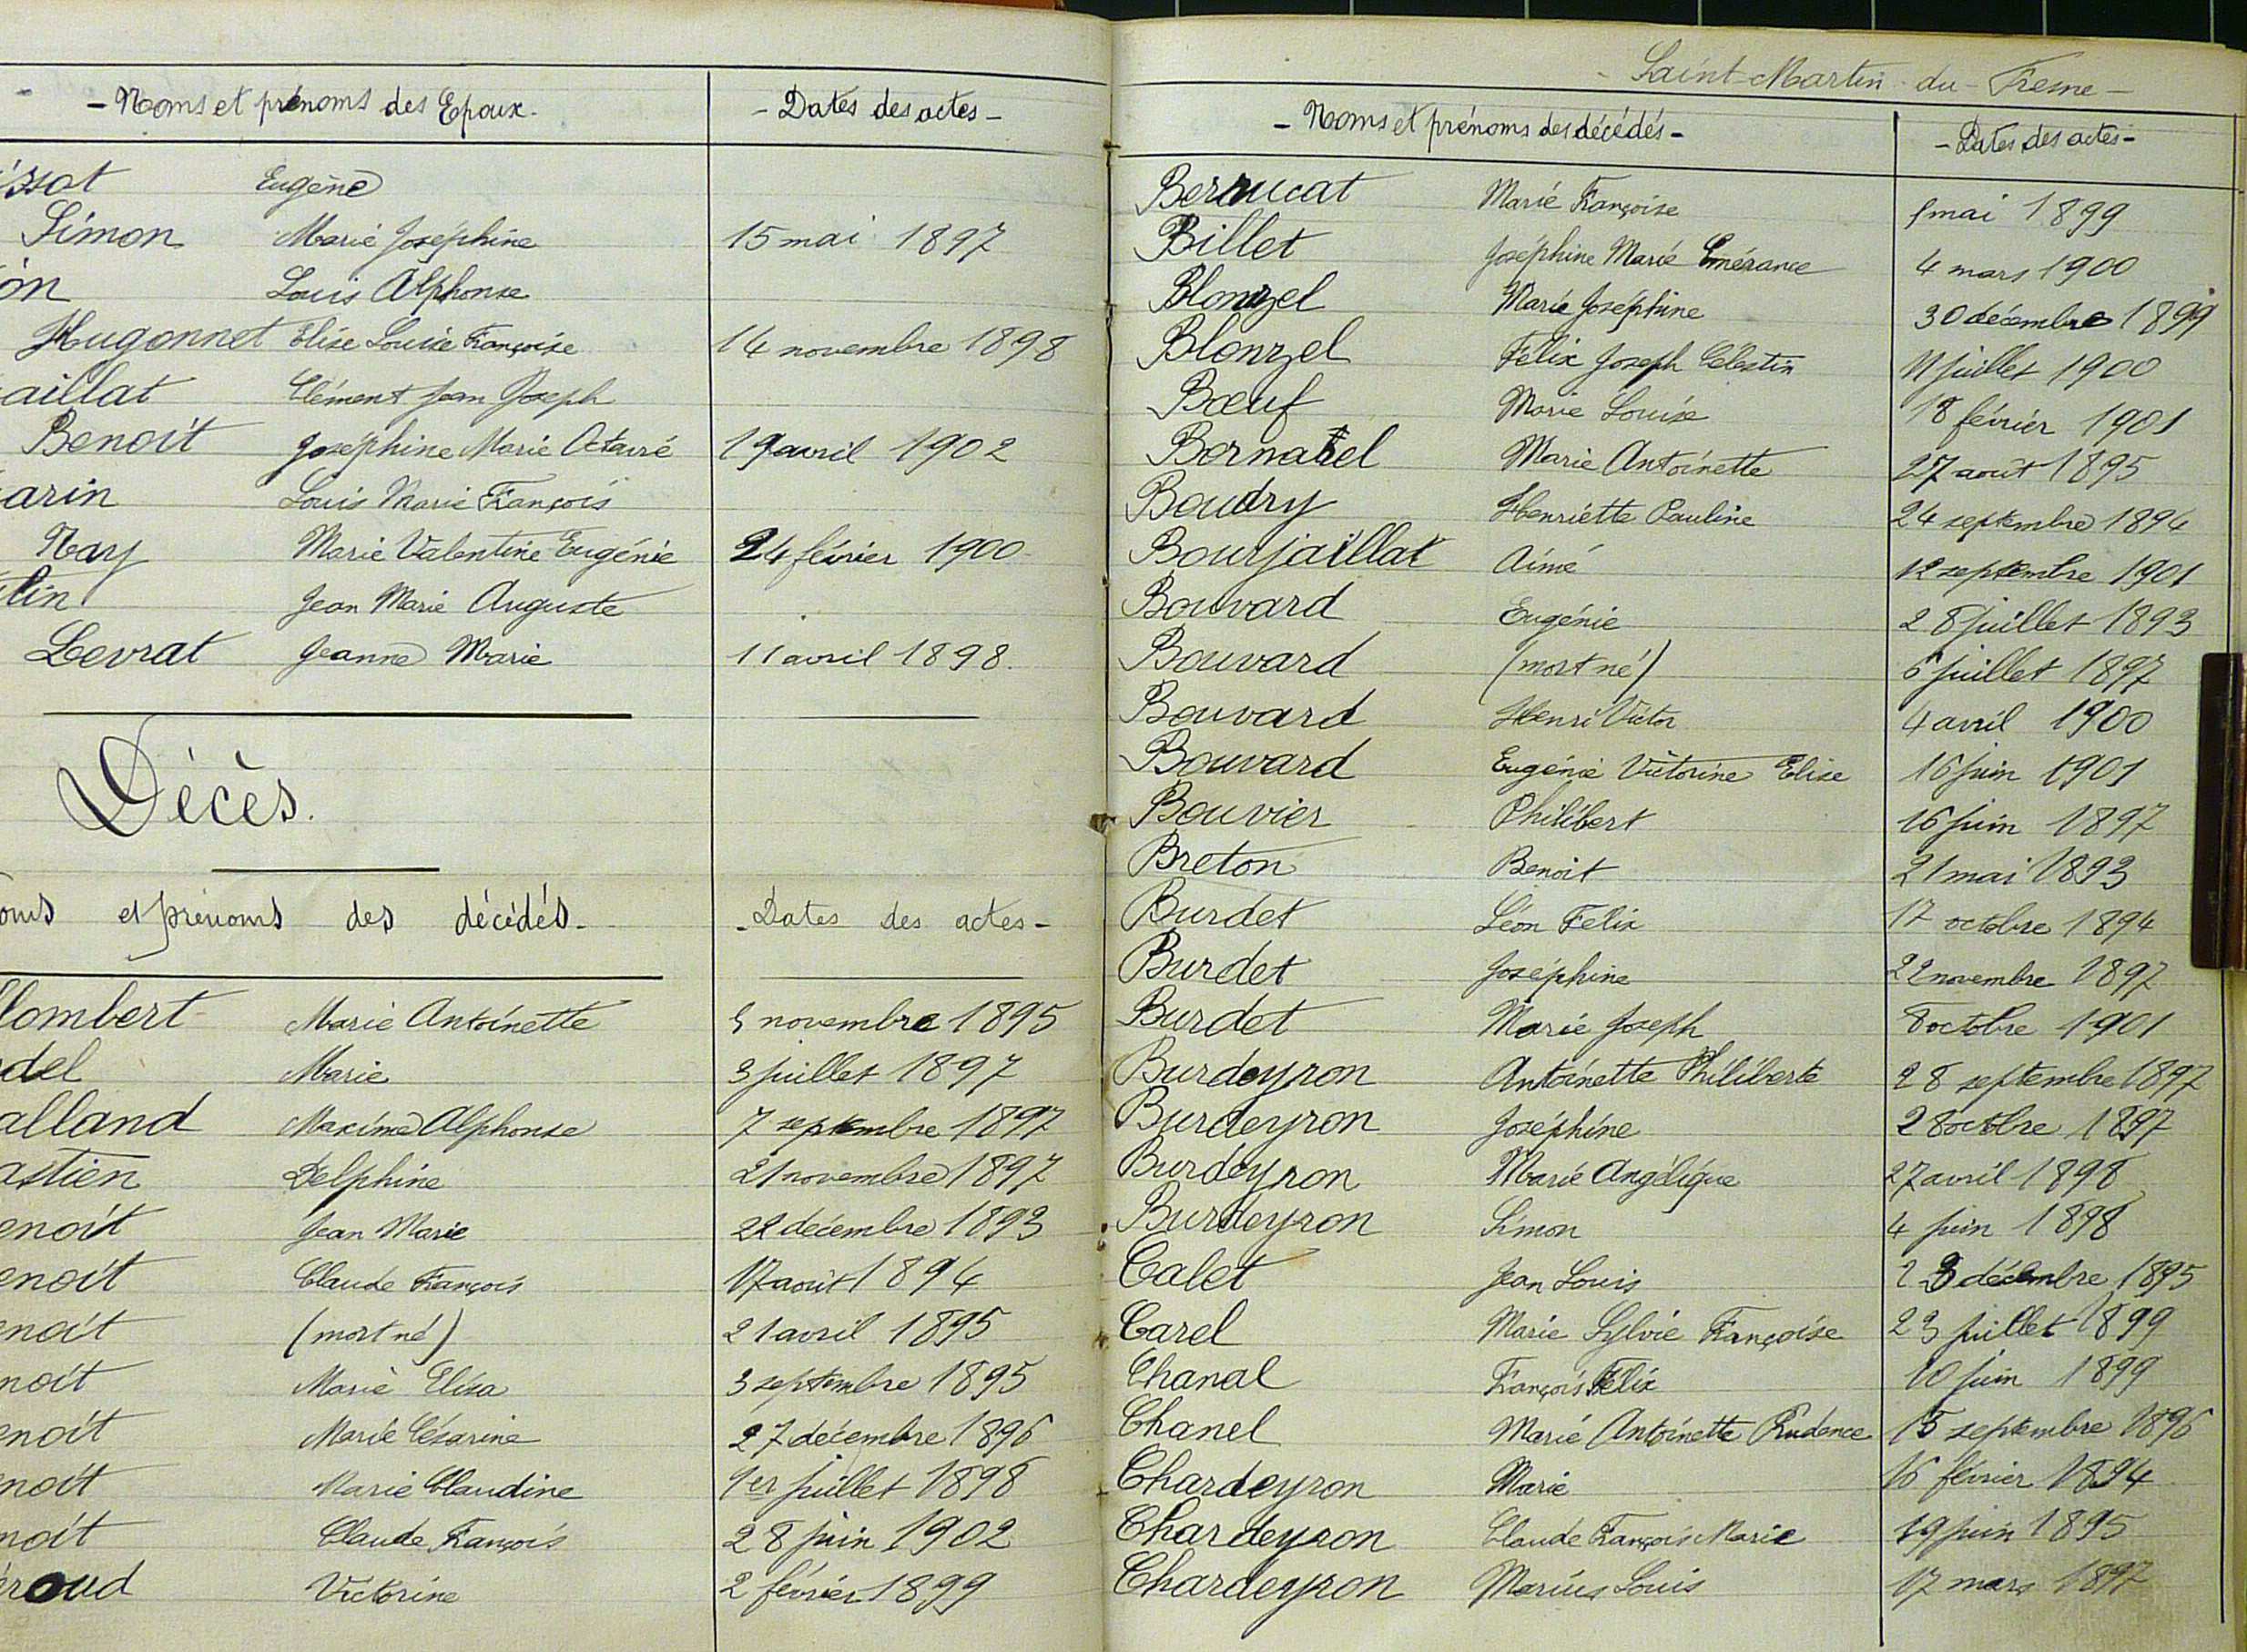 - Noms et prénoms des Epoux. - Dates des actes -
issot Eugène
Simon Marie Joséphine 15 mai 1897
on Louis Alphonse
Hugonnet Elise Louise Françoise 14 novembre 1898
aillat Clément Jean Joseph
Benoit Joséphine Marie Octavie 19 avril 1902
arin Louis Marie François
Nay Marie Valentine Eugénie 24 février 1900
lin Jean Marie Auguste
Levrat Jeanne Marie 11 avril 1898.
Décès.
oms et prénoms des décédés. - Dates des actes -
lombert Marie Antoinette 5 novembre 1895
del Marie 3 juillet 1897
alland Maxime Alphonse 7 septembre 1897
astien Delphine 21 novembre 1897
enoit Jean Marie 22 décembre 1893
enoit Claude François 17 août 1894
enoit (mort né) 21 avril 1895
noit Marie Elisa 3 septembre 1895
enoit Marie Césarine 27 décembre 1896
noit Marie Claudine 1er juillet 1898
noit Claude François 28 juin 1902
éroud Victorine 2 février 1899
- Saint-Martin-du-Fresne -
- Noms et prénoms des décédés - - Dates des actes -
Berrucat Marie Françoise mai 1899
Billet Joséphine Marie Emérance 4 mars 1900
Blonzel Marie Joséphine 30 décembre 1899
Blonzel Félix Joseph Célestin 11 juillet 1900
Bœuf Marie Louise 18 février 1901
Bornatel Marie Antoinette 27 août 1895
Boudry Henriette Pauline 24 septembre 1894
Bourjaillat Aimé 12 septembre 1901
Bouvard Eugénie 28 juillet 1893
Bouvard (mort né) 6 juillet 1897
Bouvard Henri Victor 4 avril 1900
Bouvard Eugénie Victorine Elise 16 juin 1901
Bouvier Philibert 16 juin 1897
Breton Benoit 21 mai 1893
Burdet Léon Félix 17 octobre 1894
Burdet Joséphine 22 novembre 1897
Burdet Marie Joseph 8 octobre 1901
Burdeyron Antoinette Philiberte 28 septembre 1897
Burdeyron Joséphine 28 octobre 1897
Burdeyron Marie Angélique 27 avril 1898
Burdeyron Simon 4 juin 1898
Calet Jean Louis 23 décembre 1895
Carel Marie Sylvie Françoise 23 juillet 1899
Chanal François Félix 10 juin 1899
Chanel Marie Antoinette Prudence 15 septembre 1896
Chardeyron Marie 16 février 1894
Chardeyron Claude François Marie 19 juin 1895
Chardeyron Marius Louis 17 mars 1897